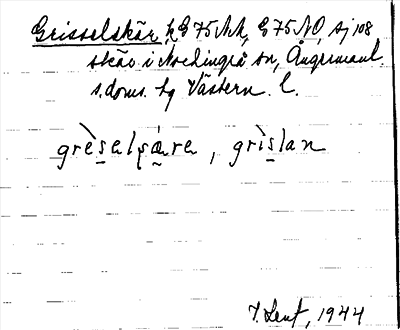 Grisselskär, kG 75NA, G 75NO, sj 108
skär i Nordingrå sn, Ångermanl.
s. doms. hg Västern. l.
grèselʂæ̣ra, grìslan
1944